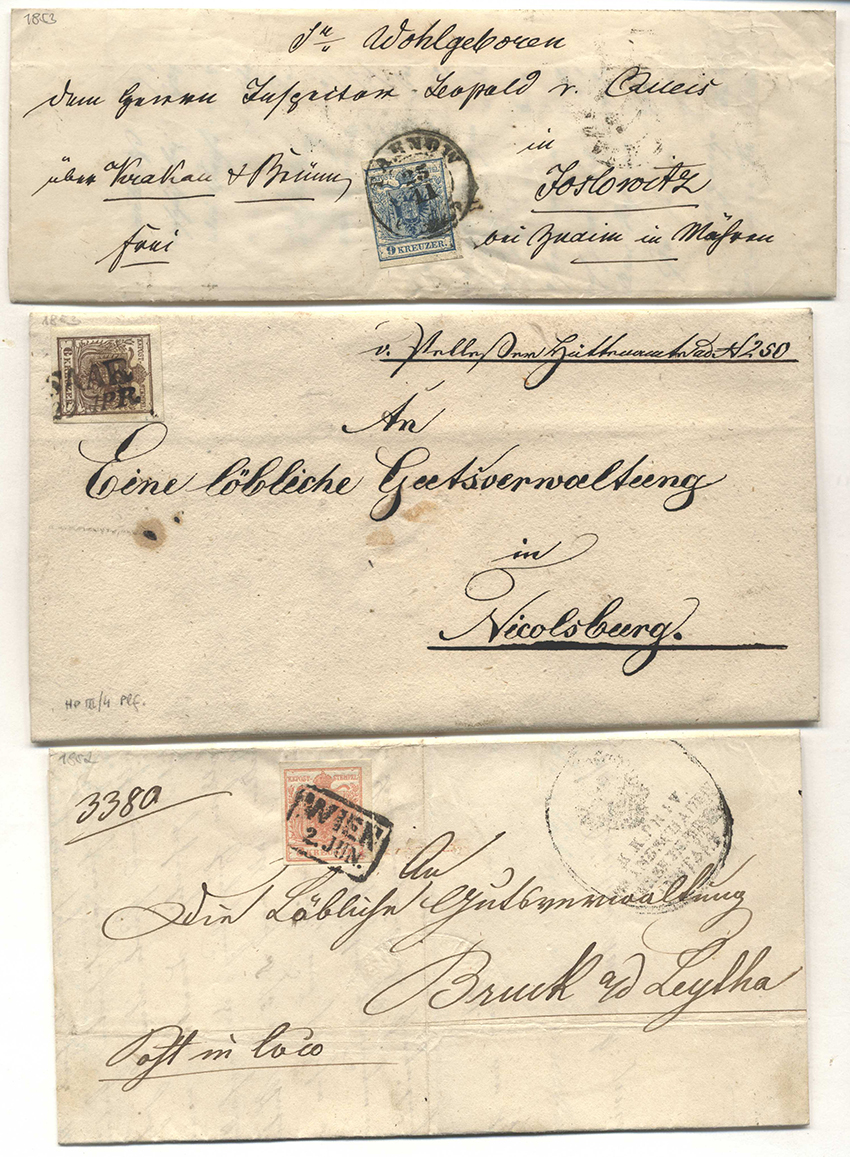 1853
Sr Wohlgeboren
dem Herrn Inspektor Leopold v. Queis
in
über Krakau & Brünn,
Joslowitz
frei
bei Znaim in Mähren
TARNOW
23
11
9 KREUZER.
1853
6 KREUZER
No 250
An
Eine löbliche Gutsverwaltung
in
Nicolsburg.
HP III/4 Plf.
1852
3380
KKPOST-STEMPEL
WIEN
2. JUN.
An
Die Löbliche Gutsverwaltung
Bruck a/d Leytha
Post in loco